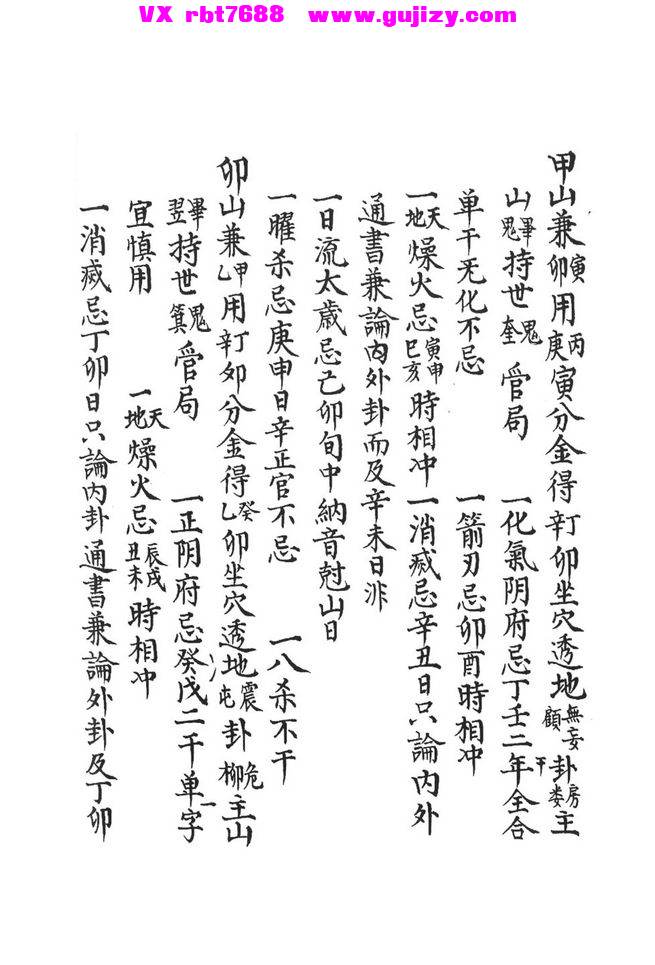 VX rbt7688 www.gujizy.com
甲山兼寅卯用丙庚寅分金得辛丁卯坐穴透地無妄顧卦房娄主
山畢鬼持世鬼奎管局 一化氣阴府忌丁壬二年干全合
单干旡化不忌 一箭刃忌卯酉時相冲
一天地燥火忌寅申巳亥時相冲一消滅忌辛丑日只論内外
通書兼論内外卦而及辛未日非
一日流太歲忌己卯旬中納音尅山日
一曜杀忌庚申日辛正官不忌 一八杀不干
卯山兼甲乙用辛丁卯分金得癸乙卯坐穴透地震屯卦危柳主山
畢翌持世鬼箕管局 一正阴府忌癸戊二干单一字
宜慎用 一天地燥火忌辰戌丑未時相冲
一消滅忌丁卯日只論内卦通書兼論外卦及丁卯